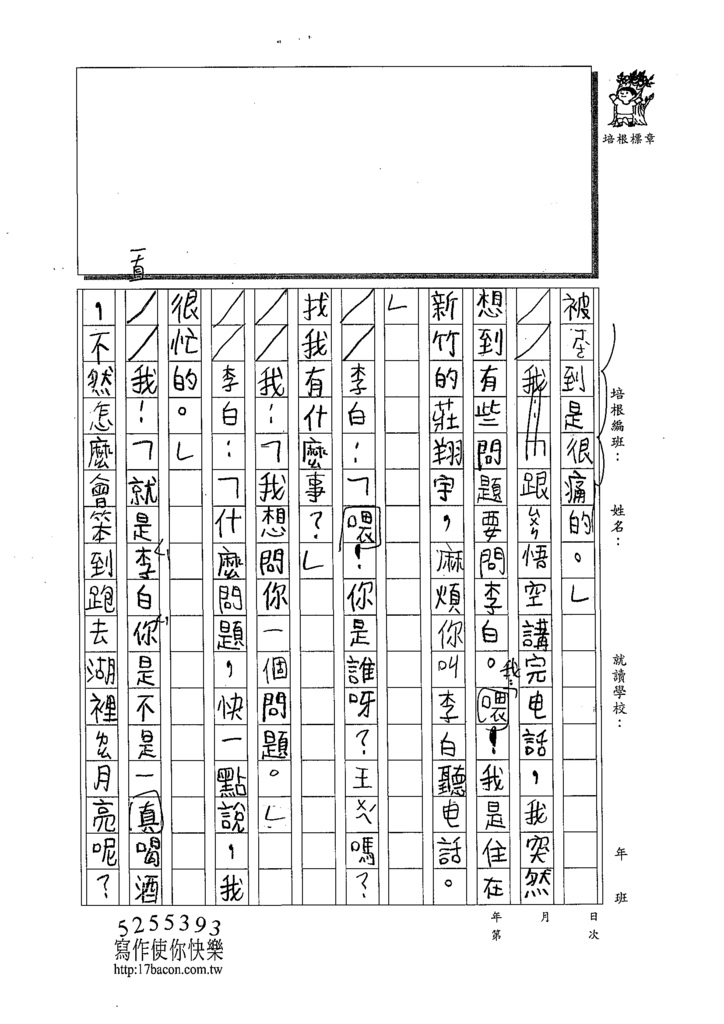 培根標章
培根編班：
姓名：
就讀學校：
年 班
年 月 日
第 次
被ㄊㄤˋ到是很痛的。」
我跟ㄙㄨㄣ悟空講完电話，我突然
想到有些問題要問李白。我：「喂！我是住在
新竹的莊翔宇，麻煩你叫李白聽电話。
」
李白：「喂！你是誰呀？王ㄨㄟˊ嗎？
找我有什麼事？」
我：「我想問你一個問題。」
李白：「什麼問題，快一點說，我
很忙的。」
我：「就是李白你是不是一真喝酒
一直
，不然怎麼會笨到跑去湖裡ㄓㄨㄛ月亮呢？
5255393
寫作使你快樂
http:17bacon.com.tw